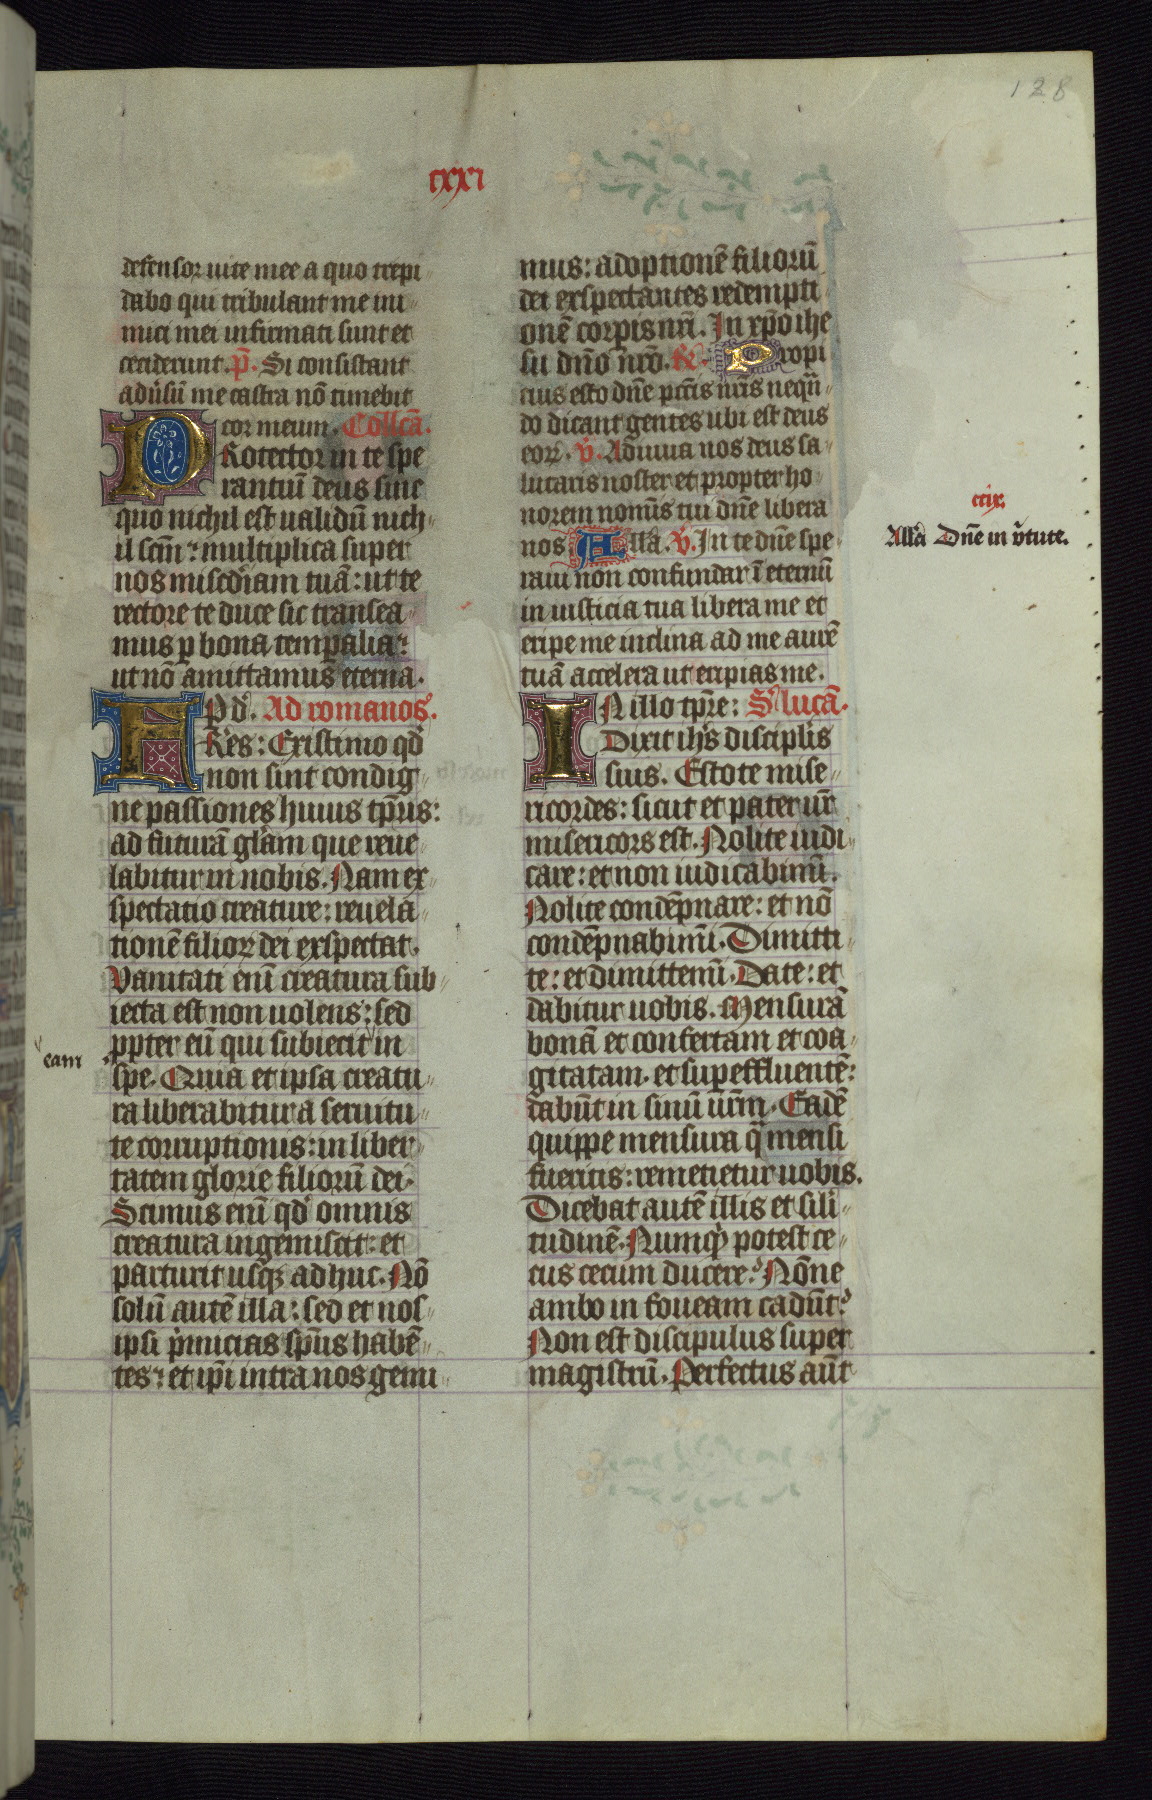 128
cxxi
defensor uite mee a quo trepi
dabo qui tribulant me ini
mici mei infirmati sunt et
ceciderunt. p̄. Si consistant
adūsū me castra nō timebit
cor meum. Collcā.
Protector in te spe
rantiū deus sine
quo nichil est ualidū nich
il scm̄: multiplica super
nos miscdiam tuā: ut te
rectore te duce sic transea
mus p bona temp̄alia:
ut nō amittamus eterna.
Ap̄d. Ad romanos.
Fr̄es: Existimo qd
non sint condig
ne passiones huius tp̄ris:
ad futurā glām que reue
labitur in nobis. Nam ex
spectatio creature: reuela
tionē filioꝝ dei exspectat.
Vanitati enī creatura sub
iecta est non uolens: sed
ppter eū qui subiecit in
eam
spe. Quia et ipsa creatu
ra liberabitur a seruitu
te corruptionis: in liber
tatem glorie filiorū dei.
Scimus enī qd omnis
creatura ingemiscit: et
parturit usqꝫ adhuc. Nō
solū autē illa: sed et nos
ipsi p̄micias sp̄us habē
tes: et ip̄i intra nos gemi
mus: adoptionē filiorū
dei exspectantes redempti
onē corp̄is nr̄i. In xp̄o ihe
su dn̄o nr̄o. R. Propi
cius esto dn̄e pctīs nr̄is nequā
do dicant gentes ubi est deus
eoꝝ. v̄. Adiuua nos deus sa
lutaris noster et propter ho
norem nomīs tui dn̄e libera
nos. Allā. v̄. In te dn̄e spe
raui non confundar ī eternū
in iusticia tua libera me et
eripe me inclina ad me aurē
tuā accelera ut eripias me.
ccix.
Allā Dn̄e in v̄tute.
In illo tp̄re: S lucā.
Dixit ih̄s disciplis
suis. Estote mise
ricordes: sicut et pater ur̄
misericors est. Nolite iudi
care: et non iudicabimī.
Nolite condēpnare: et nō
condēpnabimī. Dimitti
te: et dimittemī. Date: et
dabitur uobis. Mensurā
bonā et confertam et coa
gitatam. et supeffluentē:
dabūt in sinū ur̄m. Eadē
quippe mensura q̄ mensi
fueritis: remetietur uobis.
Dicebat autē illis et sili
tudinē. Numqd potest ce
cus cecum ducere? Nōne
ambo in foueam cadūt?
Non est discipulus super
magistrū. Perfectus aūt